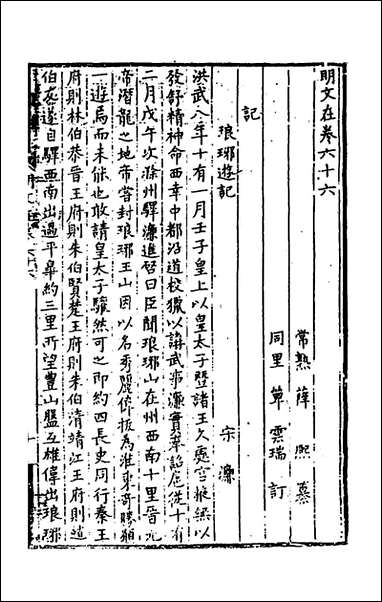 明文在卷六十六
常熟 薛熙 纂
同里 單雲瑞 訂
記
琅琊遊記
宋濂
洪武八年十有一月壬子皇上以皇太子暨諸王久處宮掖無以
發舒精神命西幸中都沿道校獵以講武事濂實奉詔扈從十有
二月戊午次滁州驛濂進啓曰臣聞琅琊山在州西南十里晉元
帝潛龍之地帝嘗封琅琊王山因以名秀麗偉拔為淮東奇勝願
一遊焉而未能也敢請皇太子驩然可之即約四長史同行秦王
府則林伯恭晉王府則朱伯賢楚王府則朱伯清靖江王府則趙
伯友遂自驛西南出過平皋約三里所望豐山盤亙雄偉出琅琊